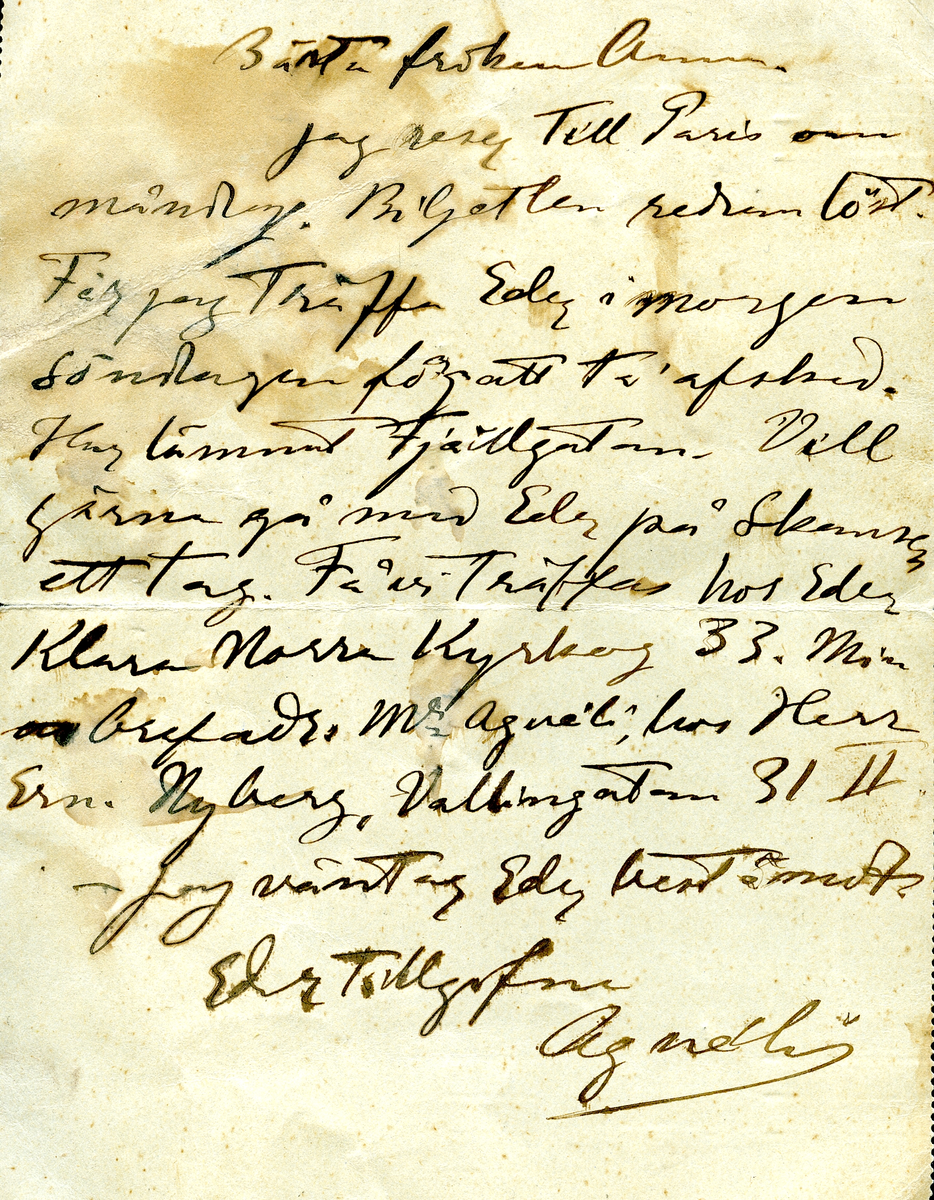 Bästa fröken Anna.
jag reser Till Paris om
måndag. Biljetten redan löst.
Får jag Träffa Eder i morgon
Söndagen för att ta' afsked.
Har lämnat Fjällgatan. Vill
gärna gå med Eder på Skansen
ett tag. Få vi träffas hos Eder
Klara Norra Kyrkog 33. Min
brefadr. Mr Aguéli, hos Herr
Ern. Nyberg, Vallingatan 31 II
– Jag väntar Eder bestämdt.
Eder Tillgifne
Aguéli